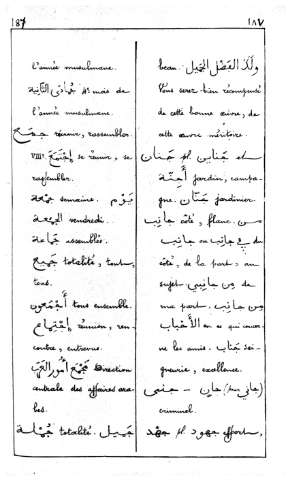 187
١٨٧
l'année musulmane.
جمادى الثانية 4e mois de
l'année musulmane.
جمع réunir, rassembler.
VIIIe. اجتمع se réunir, se
rassembler.
يوم جمعة semaine.
الجمعة vendredi.
جماعة assemblée.
جميع totalité, tout,
tous.
أجمعون tous ensemble.
اجتماع réunion, ren-
contre, entrevue.
مجمع أمور العرب Direction
centrale des affaires ara-
bes.
جملة totalité. جميل
beau. ولك الفضل الجميل
Vous serez bien récompensé
de cette bonne œuvre, de
cette œuvre méritoire.
جنان pl. جناين
أجنة jardin, campa-
gne. جنان jardinier.
جانب côté, flanc. من
جانب ou في جانب du
côté, de la part, au
sujet. من جانبي de
ma part. من جانب
الأحباب en ce qui concer-
ne les amis. جناب sei-
gneurie, excellence.
جنى – جان (جاني)
criminel.
جهد pl. جهود effort,